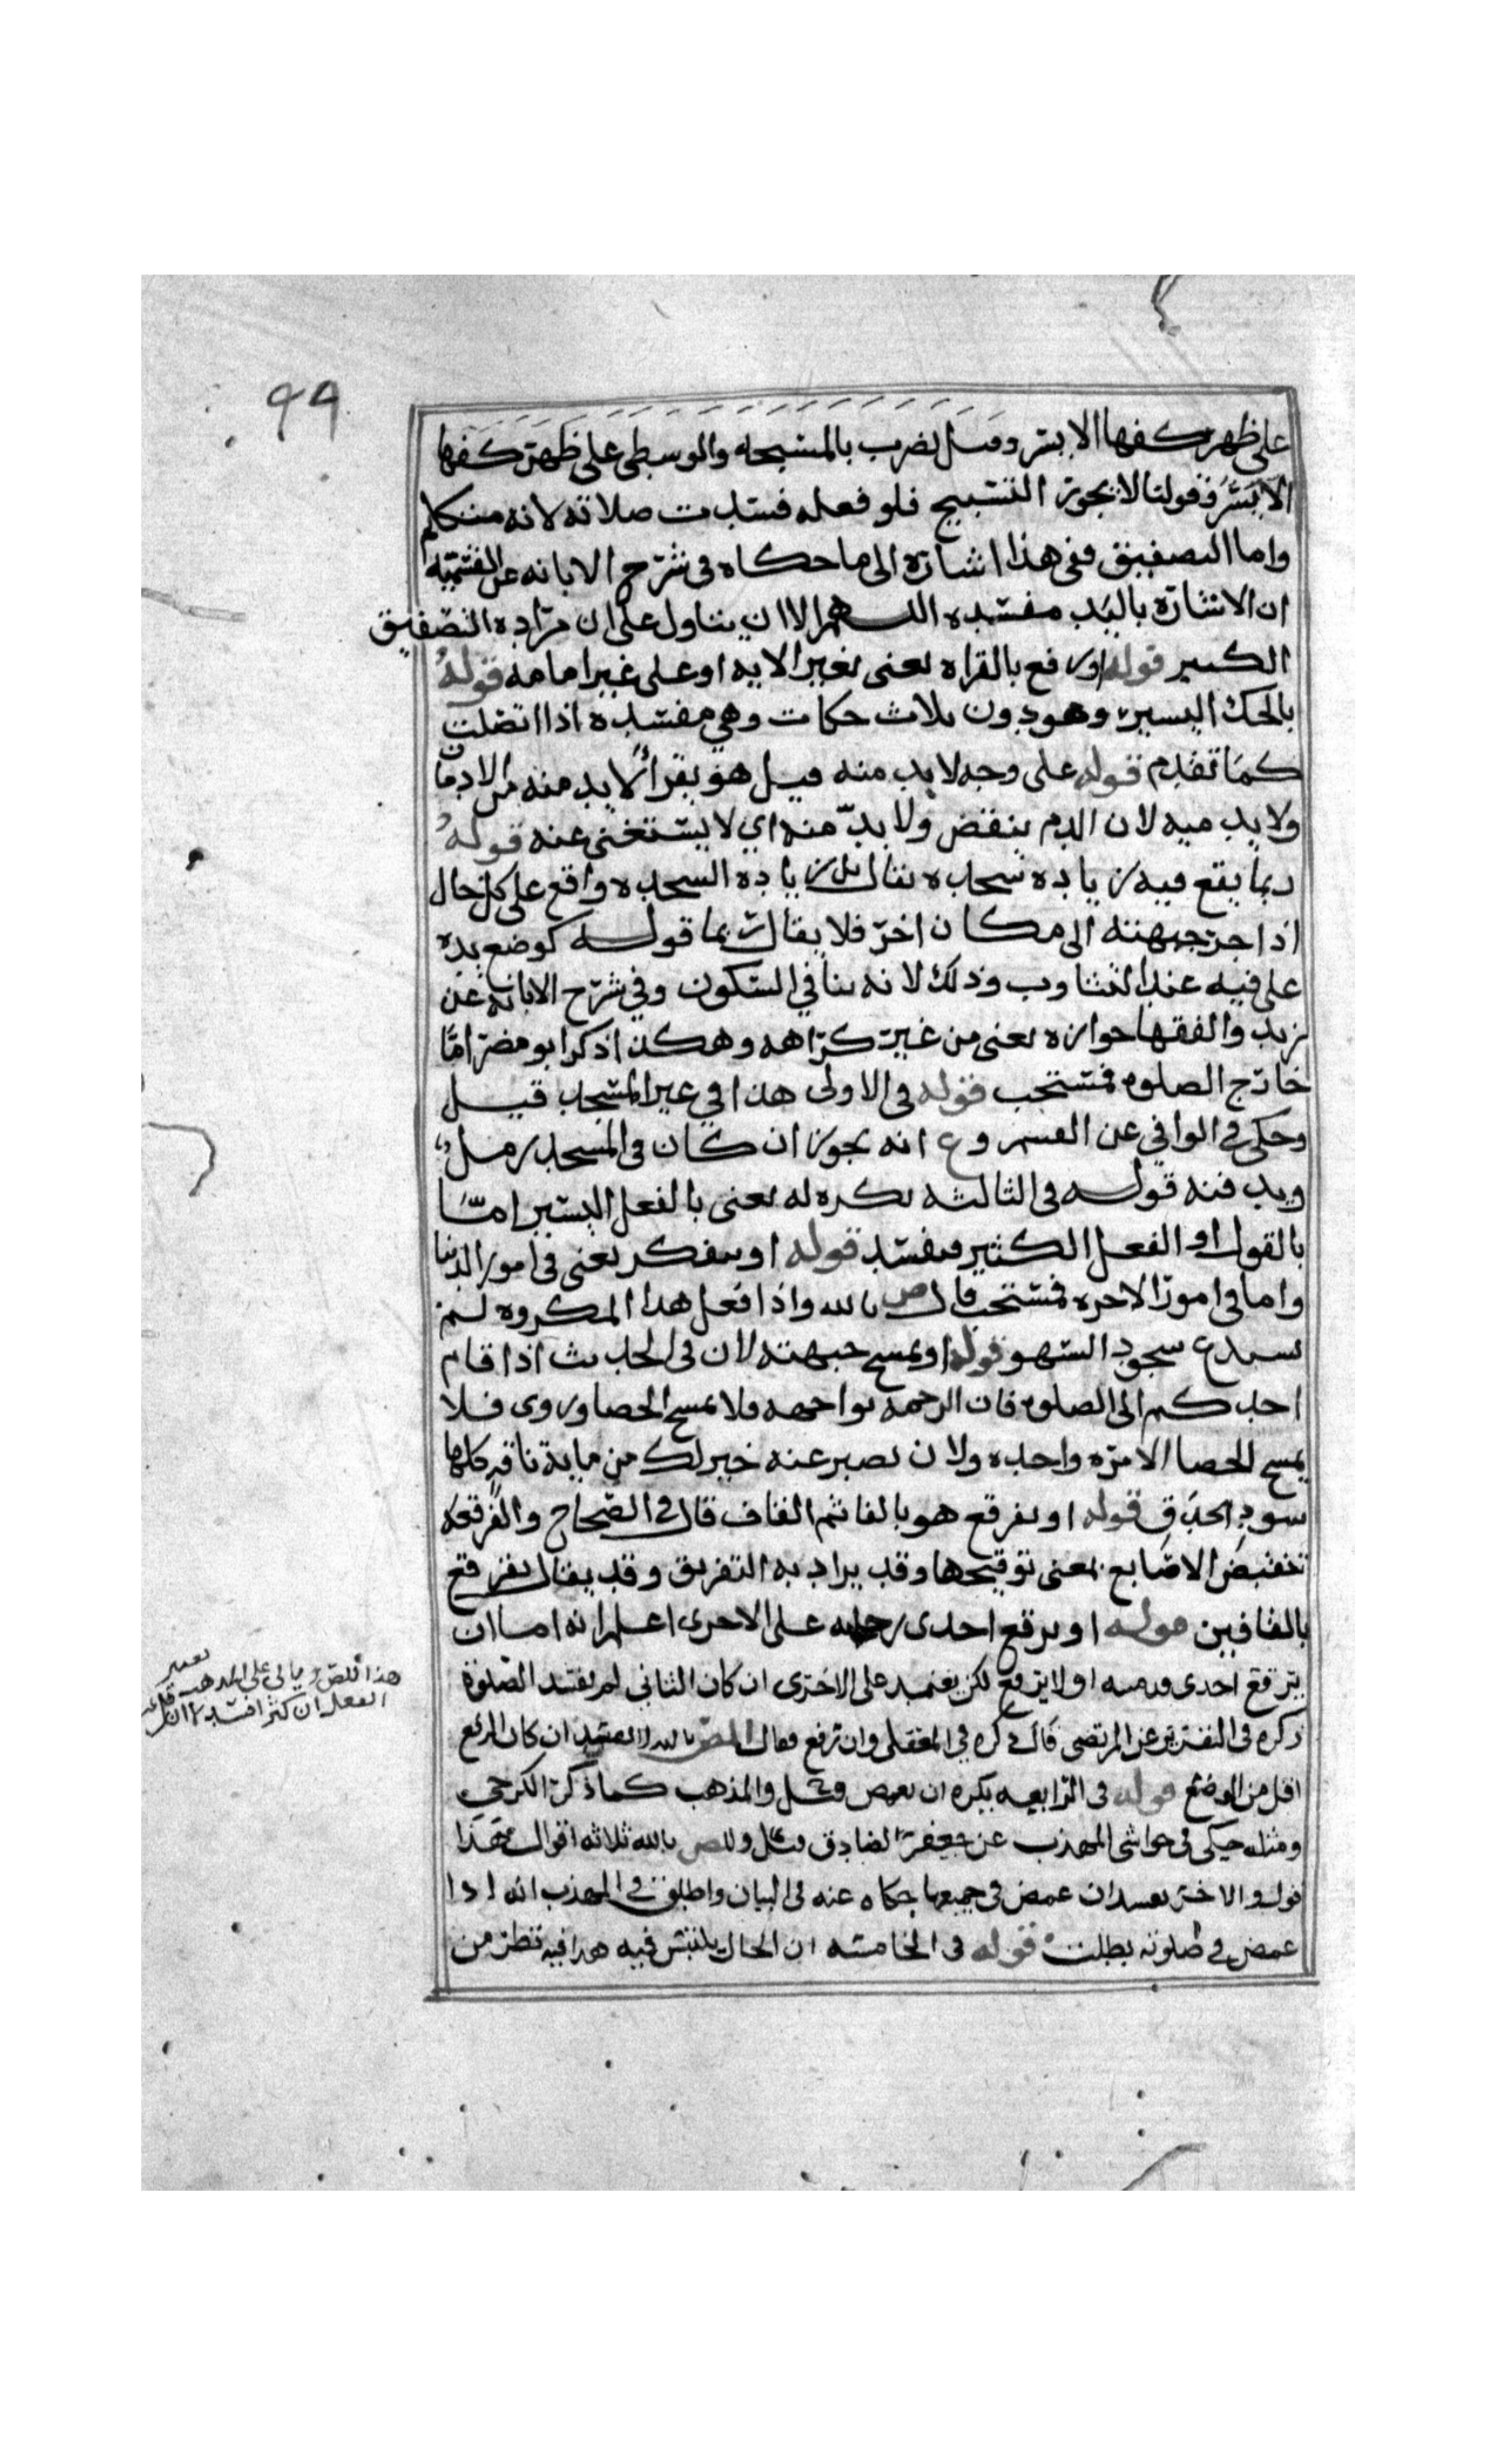 ٩٩
على ظهر كفها الايسر وقيل تضرب بالمسبحه والوسطى على ظهر كفها
الايسر فقولنا لا يجوز التسبيح فلو فعله فسدت صلاته لانه متكلم
واما التصفيق ففى هذا اشارة الى ما حكاه فى شرح الابانه عن القسميه
ان الاشارة باليد مفسده اللهم الا ان يتاول على ان مراده التصفيق
الكثير قوله او رفع بالقراه يعنى بغير الايه او على غير امامه قوله
بالحك اليسير وهو دون ثلاث حكات وهي مفسده اذا اتصلت
كما تقدم قوله على وجه لا بد منه قيل هو يقرا لا يد منه من الادمان
ولا يد فيه لان الدم ينقض ولا بدّ منه اي لا يستغنى عنه قوله
ربما يقع فيه زياده سجده يقال بل زياده السجده واقع على كل حال
اذا جر جبهته الى مكان اخر فلا يقال ربما قوله كوضع يده
على فيه عند التثاوب وذلك لانه ينافي السكون وفي شرح الابانه عن
زيد والفقها جوازه يعنى من غير كراهه وهكذا ذكر ابو مضر امّا
خارج الصلوه فمستحب قوله فى الاولى هذا في غير المسجد قيل
وحكى في الوافي عن القسم وع انه يجوز ان كان فى المسجد رمل
ويدفنه قوله فى الثالثه يكره له يعنى بالفعل اليسير امّا
بالقول او الفعل الكثير فمفسد قوله او يتفكر يعنى فى امور الدنيا
واما فى امور الاخره فمستحب قال ص بالله واذا فعل هذا المكروه لم
يستدع سجود السهو قوله او يمسح جبهته لان فى الحديث اذا قام
احدكم الى الصلوه فان الرحمه تواجهه فلا يمسح الحصا وروى فلا
يمسح الحصا الا مره واحده ولان تصبر عنه خير لك من ماية ناقه كلها
سود الحدق قوله او يفرقع هو بالفا ثم القاف قال فى الصحاح والفرقعه
تنقيض الاصابع بمعنى توقيحها وقد يراد به التفريق وقد يقال يقرقع
بالقافين قوله او يرفع احدى رجليه على الاخرى اعلم انه اما ان
يرفع احدى قدميه او لا يرفع لكن يعتمد على الاخرى ان كان الثاني لم تفسد الصلوة
ذكره فى التقرير عن المرتضى قال ذكره في المغنى وان رفع فقال المص بالله لا تفسد ان كان الرفع
اقل من الوضع قوله فى الرابعه يكره ان يغمض وقيل والمذهب كما ذكر الكرخي
ومثله حكى فى حواشى المهذب عن جعفر الصادق وقيل وللص بالله ثلاثه اقوال هذا
قول والاخر يفسد ان غمض فى جميعها حكاه عنه فى البيان واطلق فى المهذب انه اذا
غمض فى صلوته بطلت قوله فى الخامسه ان الحال يلتبس فيه هذا فيه نظر من
هذا للص بالله على المذهب
الفعل ان كثر افسد